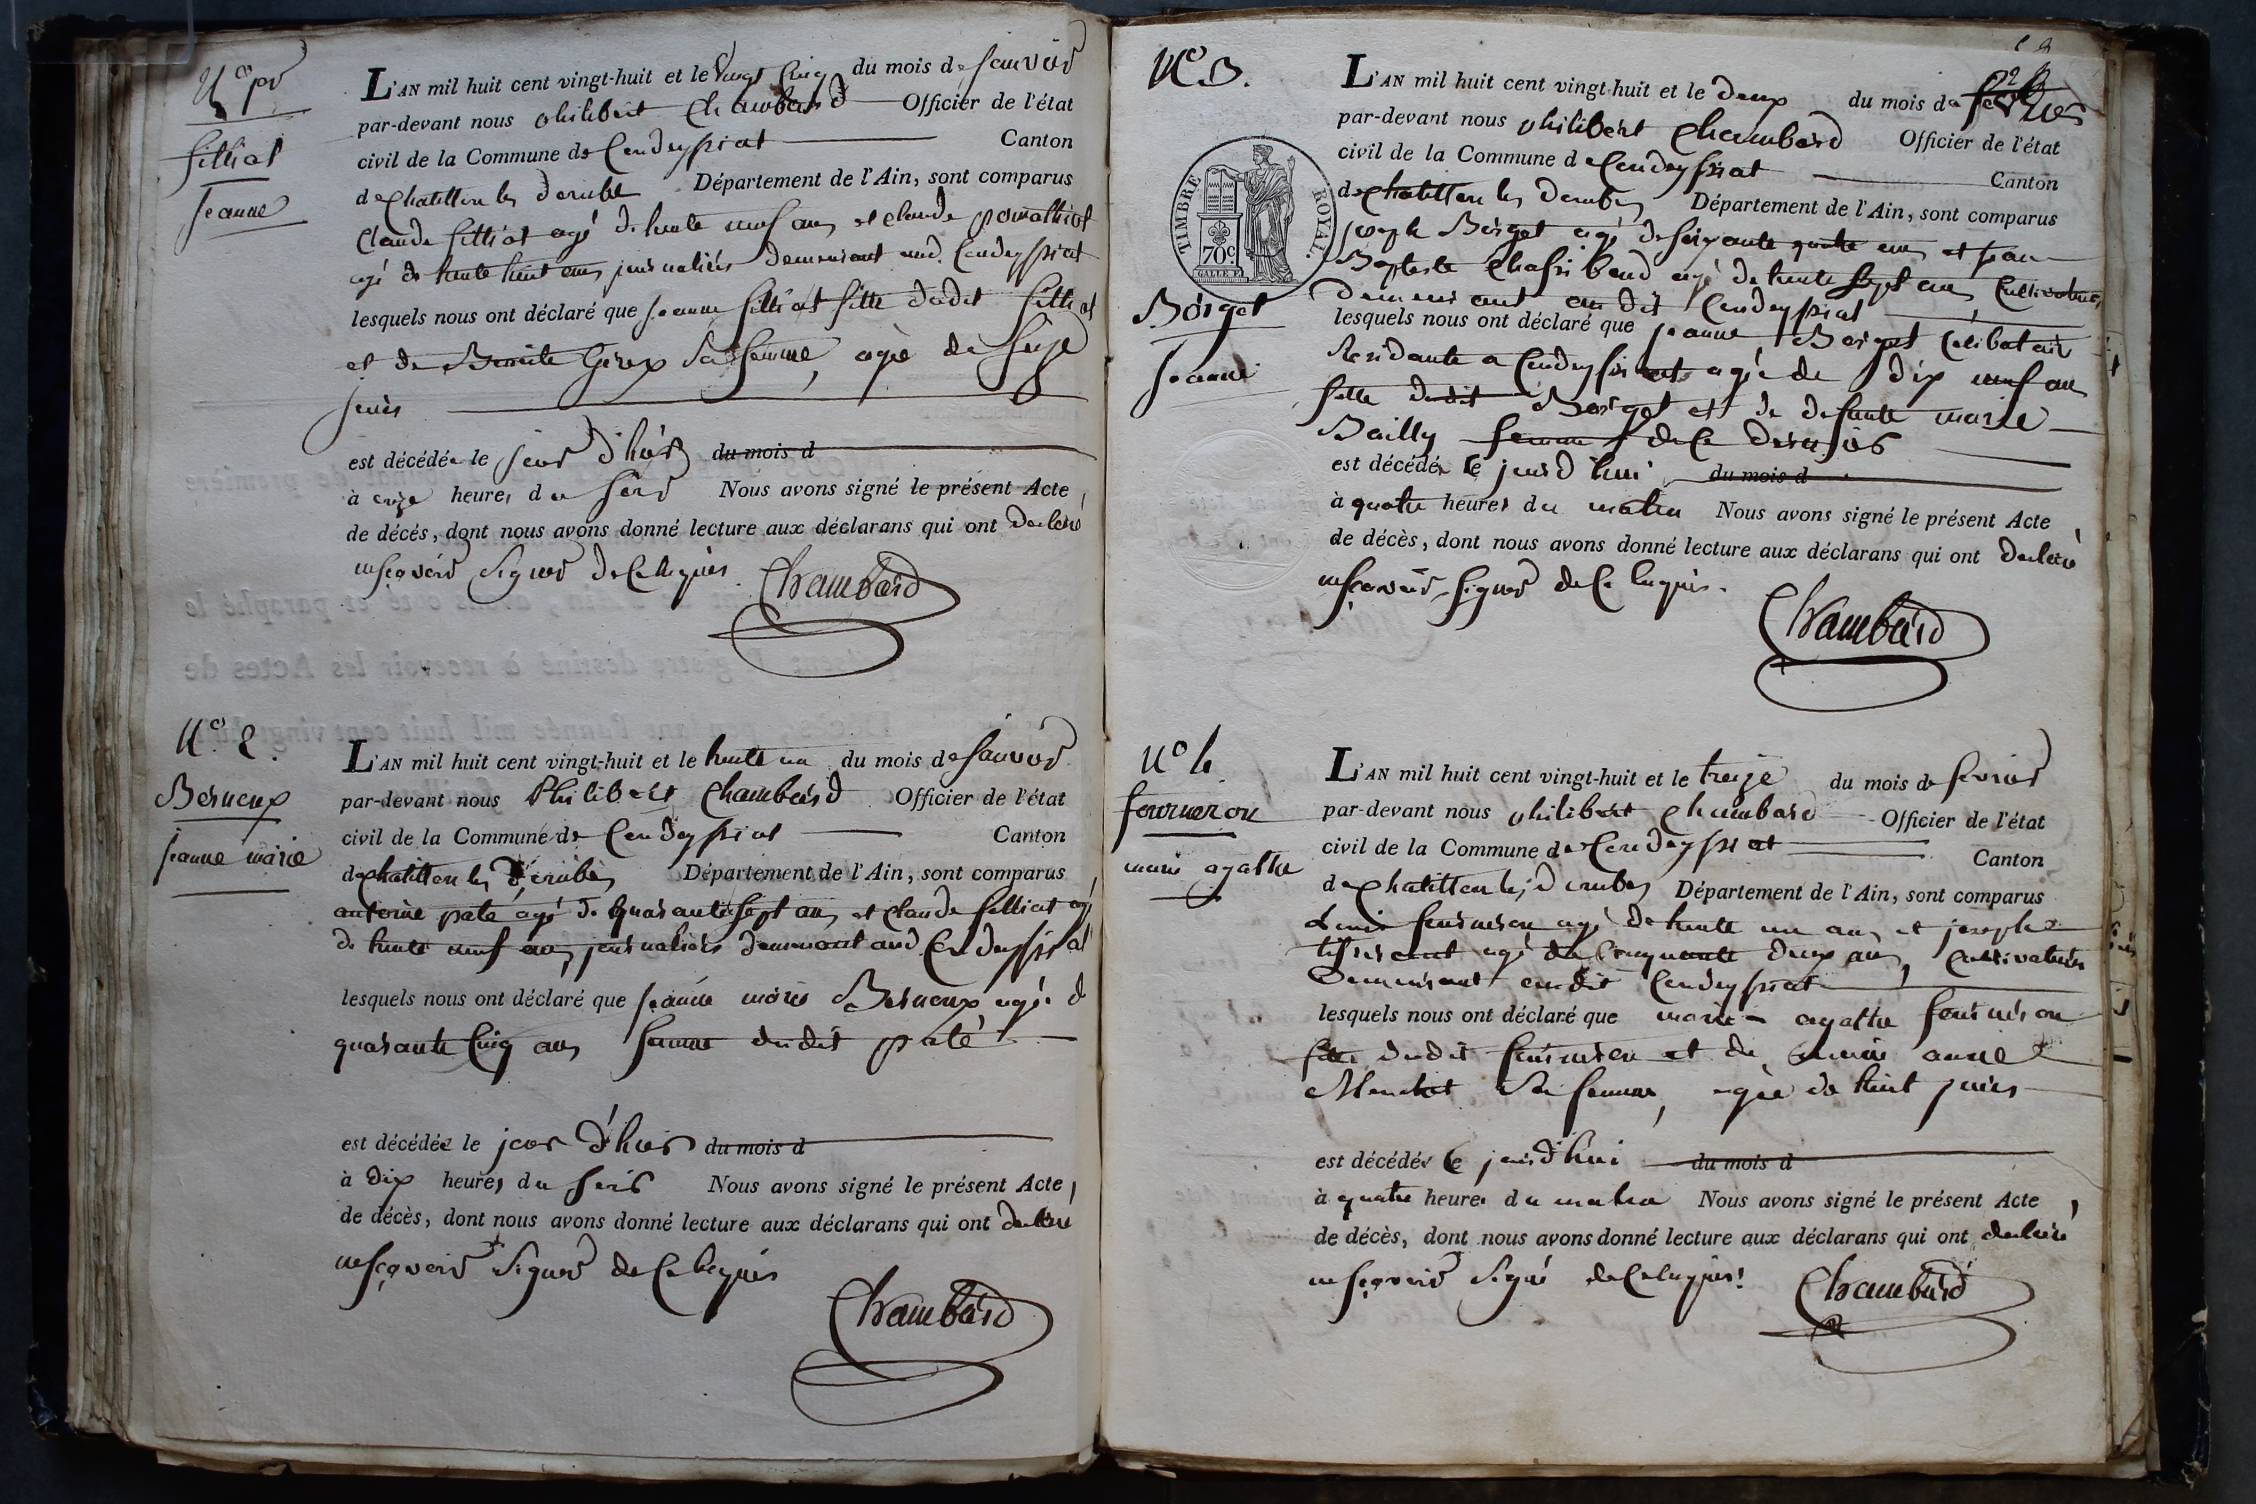 N° pr
filliat
jeanne
L'AN mil huit cent vingt-huit et le vingt cinq du mois de janvier
par-devant nous philibert Chambard Officier de l'état
civil de la Commune de Condeyssiat Canton
de Chatillon les Dombes Département de l'Ain, sont comparus
Claude filliat agé de trente neuf ans et Claude
agé de trente huit ans journaliers demeurant aud. Condeyssiat
lesquels nous ont déclaré que jeanne filliat fille dudit filliat
et de Benoite Girex sa femme, agée de seize
jours
est décédée le jour d'hier du mois d
à onze heures du soir Nous avons signé le présent Acte
de décés, dont nous avons donné lecture aux déclarans qui ont declaré
ne sçavoir signer de ce requis
Chambard
N° 2.
Berneux
jeanne marie
L'AN mil huit cent vingt-huit et le trente un du mois de janvier
par-devant nous Philibert Chambard Officier de l'état
civil de la Commune de Condeyssiat Canton
de Chatillon les Dombes Département de l'Ain, sont comparus
antoine paté agé de quarante sept ans et Claude filliat agé
de trente neuf ans, journaliers demeurant aud. Condeyssiat
lesquels nous ont déclaré que jeanne marie Berneux agée d
quarante cinq ans femme dudit paté
est décédée le jour d'hier du mois d
à dix heures du soir Nous avons signé le présent Acte,
de décès, dont nous avons donné lecture aux déclarans qui ont declaré
ne sçavoir signer de ce requis
Chambard
2
N° 3.
TIMBRE ROYAL.
70c
Borget
jeanne
L'AN mil huit cent vingt-huit et le deux du mois de fevrier
par-devant nous philibert Chambard Officier de l'état
civil de la Commune de Condeyssiat Canton
de Chatillon les Dombes Département de l'Ain, sont comparus
joseph Borget agé de soixante quatre ans et jean
Baptiste agé de trente sept ans, Cultivateurs
demeurant audit Condeyssiat
lesquels nous ont déclaré que jeanne Borget Célibatair
Residante a Condeyssiat agée de dix neuf ans
fille dudit Borget et de defunte marie
Bailly femme de ce dernier
est décédée le jour d'hui du mois d
à quatre heures du matin Nous avons signé le présent Acte,
de décès, dont nous avons donné lecture aux déclarans qui ont declaré
ne sçavoir signer de ce requis.
Chambard
N° 4.
fourneron
marie agathe
L'AN mil huit cent vingt-huit et le treize du mois de fevrier
par-devant nous philibert Chambard Officier de l'état
civil de la Commune de Condeyssiat Canton
de Chatillon les Dombes Département de l'Ain, sont comparus
Louis fourneron agé de trente un ans et joseph
agé de Cinquante deux ans, Cultivateurs
Demeurant audit Condeyssiat
lesquels nous ont déclaré que marie agathe fourneron
fille dudit fourneron et de marie anne
sa femme, agée de huit jours
est décédée le jour d'hui du mois d
à quatre heures du matin Nous avons signé le présent Acte,
de décès, dont nous avons donné lecture aux déclarans qui ont declaré
ne sçavoir signé de ce requis.
Chambard